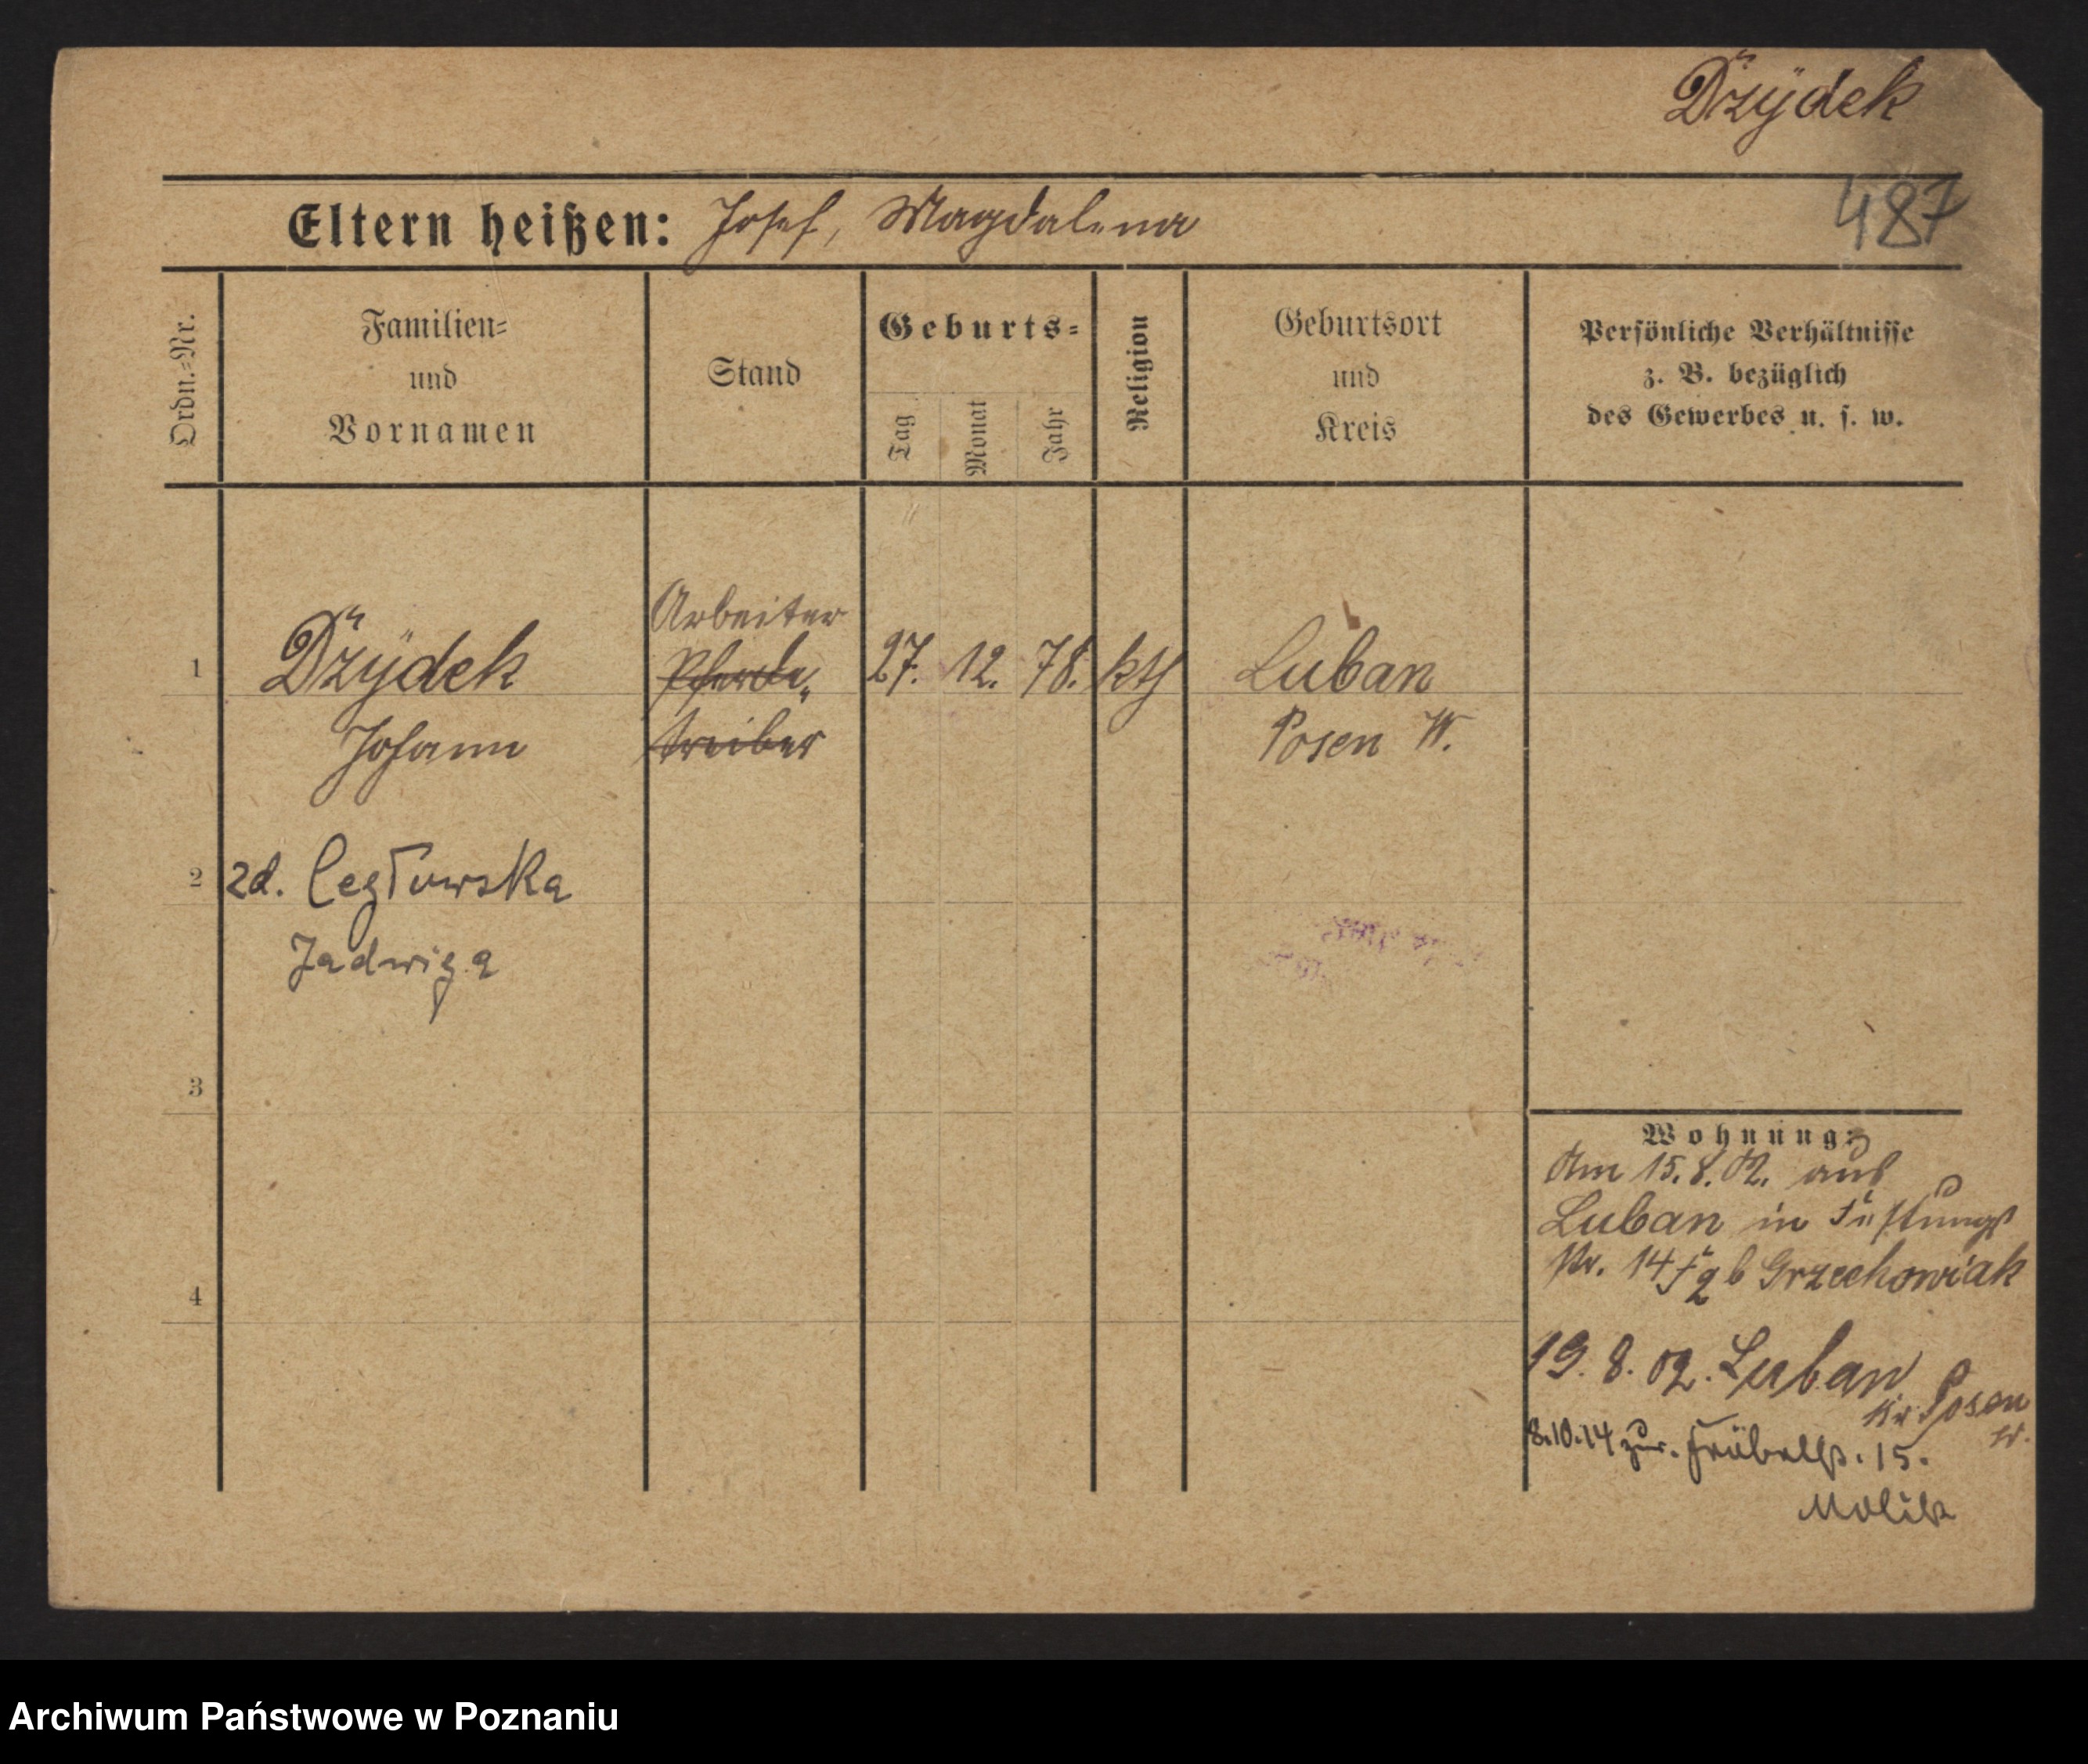 Dżÿdek
487
Eltern heißen: Josef, Magdalena
Ordn.-Nr.
Familien-
und
Vornamen
Stand
Geburts-
Tag
Monat
Jahr
Religion
Geburtsort
und
Kreis
Persönliche Verhältnisse
z. B. bezüglich
des Gewerbes u. s. w.
Arbeiter
1 Dżÿdek Pferde- 27. 12. 78. kth Luban
Johann treiber Posen W.
2 zd. Cegłowska
Jadwiga
3
Wohnung:
Am 15.8.02. aus
Luban in Festungs
14 b Grzechowiak
4
19.8.02. Luban
Kr. Posen
W.
8.10.14 zur. Fröbelstr. 15.
Molik
Archiwum Państwowe w Poznaniu